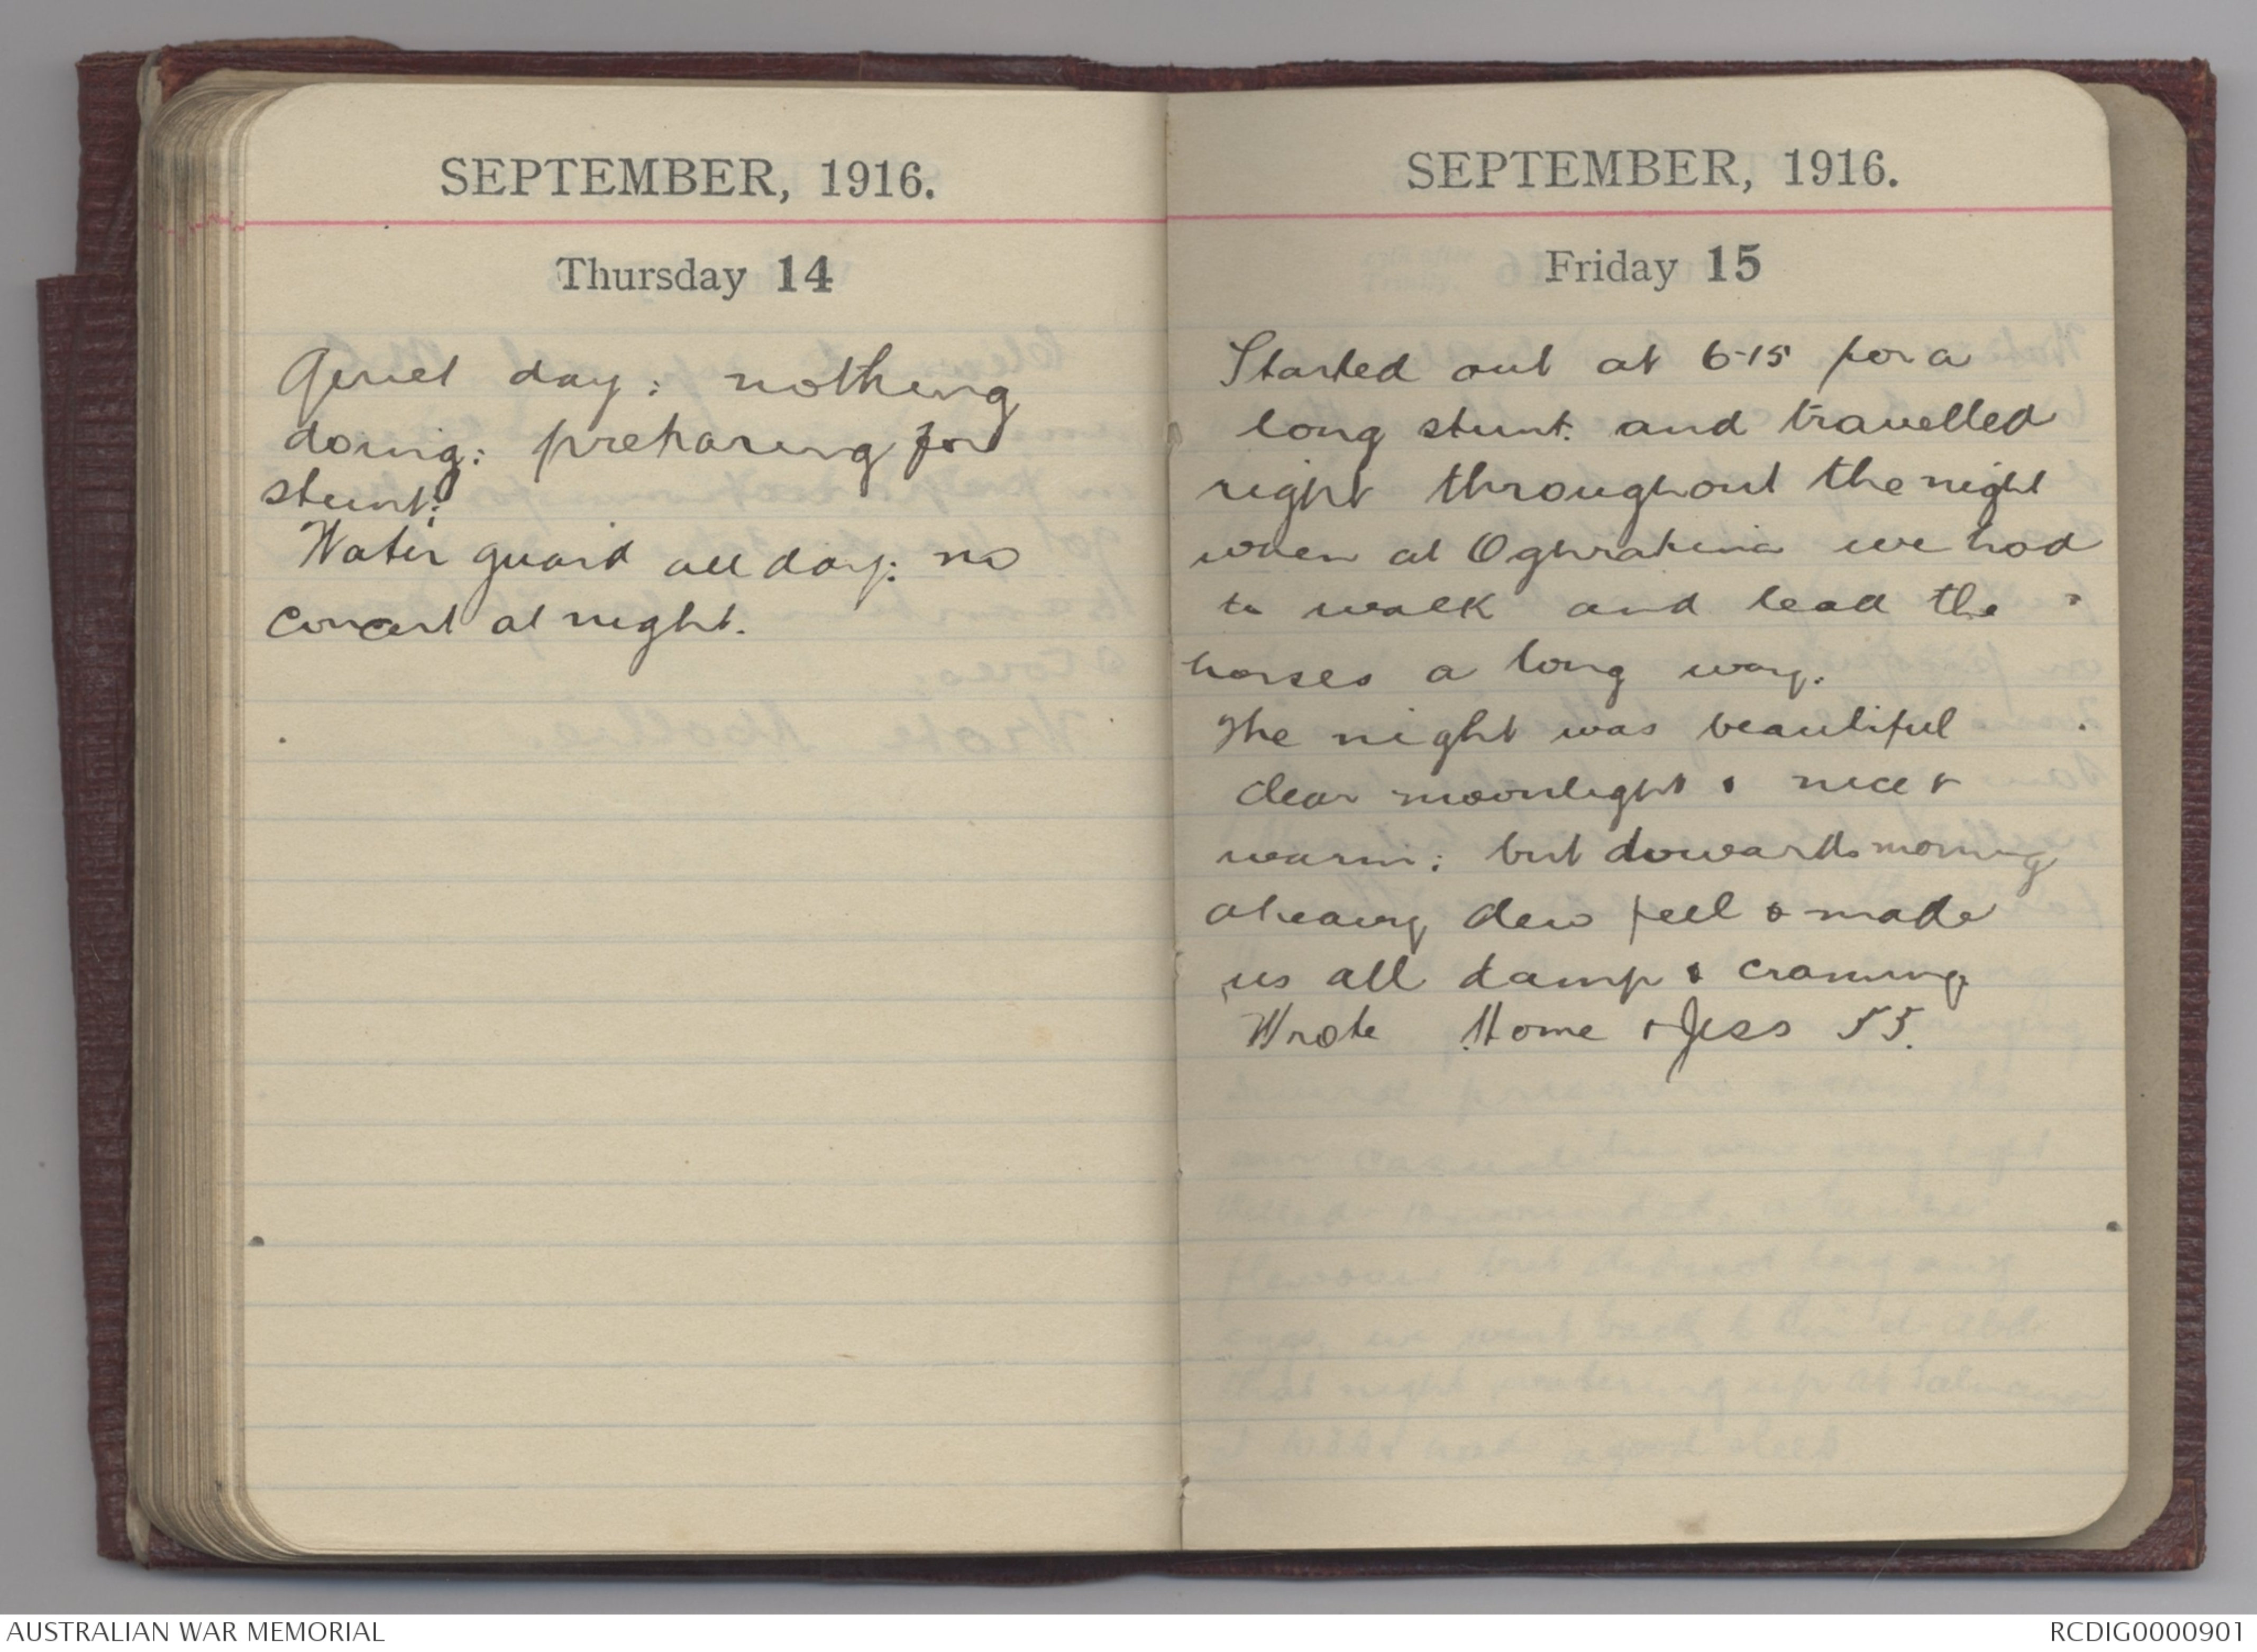 SEPTEMBER, 1916.
Thursday 14
Quiet day: nothing
doing: preparing for
stunt:
Water guard all day: no
concert at night.
SEPTEMBER, 1916.
Friday 15
Started out at 6-15 for a
long stunt. and travelled
right throughout the night
when at Oghratina we had
to walk and lead the
horses a long way.
The night was beautiful
clear moonlight & nice &
warm: but dowards morning
a heavy dew fell & made
us all damp &
Wrote Home & Jess 55.
AUSTRALIAN WAR MEMORIAL
RCDIG0000901